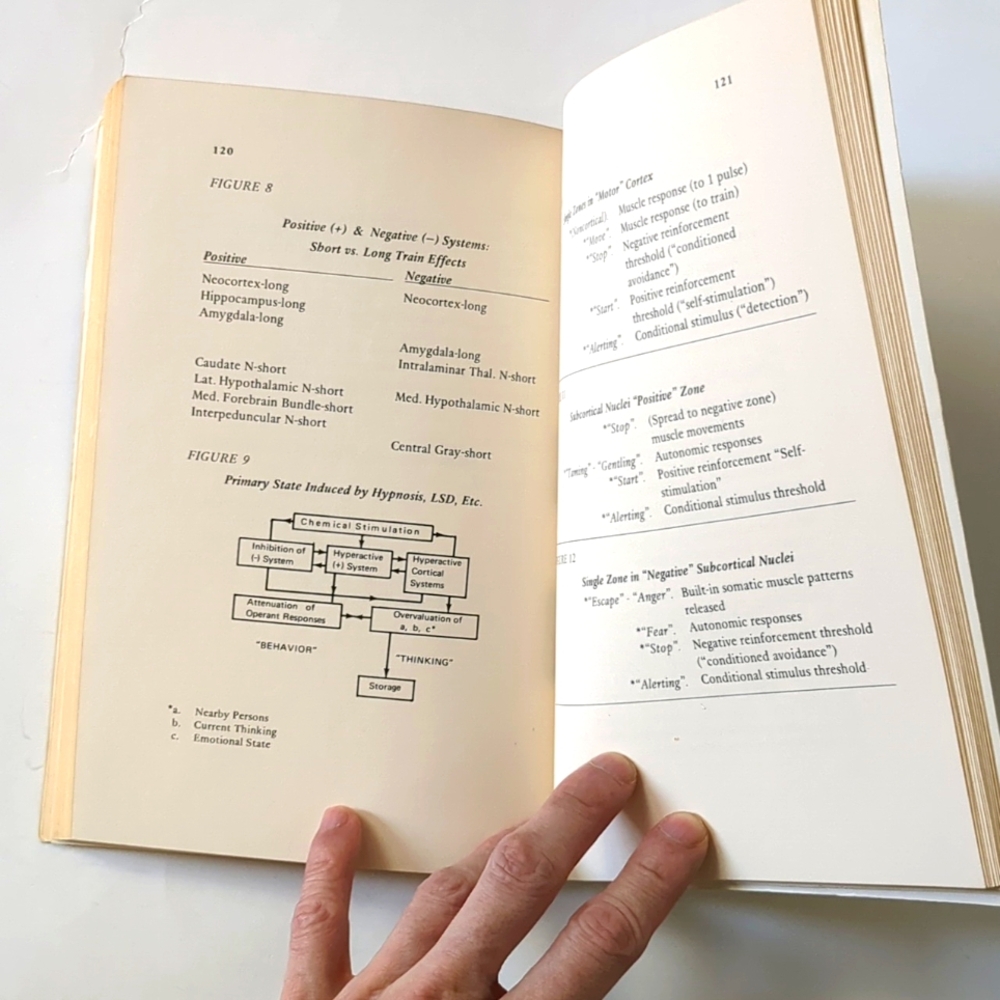 120
FIGURE 8
Positive (+) & Negative (−) Systems:
Short vs. Long Train Effects
Positive Negative
Neocortex-long Neocortex-long
Hippocampus-long
Amygdala-long
Amygdala-long
Caudate N-short Intralaminar Thal. N-short
Lat. Hypothalamic N-short
Med. Forebrain Bundle-short Med. Hypothalamic N-short
Interpeduncular N-short
Central Gray-short
FIGURE 9
Primary State Induced by Hypnosis, LSD, Etc.
Chemical Stimulation
Inhibition of
(-) System
Hyperactive
(+) System
Hyperactive
Cortical
Systems
Attenuation of
Operant Responses
Overvaluation of
a, b, c*
"BEHAVIOR"
"THINKING"
Storage
*a. Nearby Persons
b. Current Thinking
c. Emotional State
121
Zones in "Motor" Cortex
Muscle response (to 1 pulse)
"Move". Muscle response (to train)
*"Stop". Negative reinforcement
threshold ("conditioned
avoidance")
*"Start". Positive reinforcement
threshold ("self-stimulation")
*"Alerting". Conditional stimulus ("detection")
Subcortical Nuclei "Positive" Zone
*"Stop". (Spread to negative zone)
muscle movements
"Taming" - "Gentling". Autonomic responses
*"Start". Positive reinforcement "Self-
stimulation"
*"Alerting". Conditional stimulus threshold
12
Single Zone in "Negative" Subcortical Nuclei
*"Escape" - "Anger". Built-in somatic muscle patterns
released
*"Fear". Autonomic responses
*"Stop". Negative reinforcement threshold
("conditioned avoidance")
*"Alerting". Conditional stimulus threshold